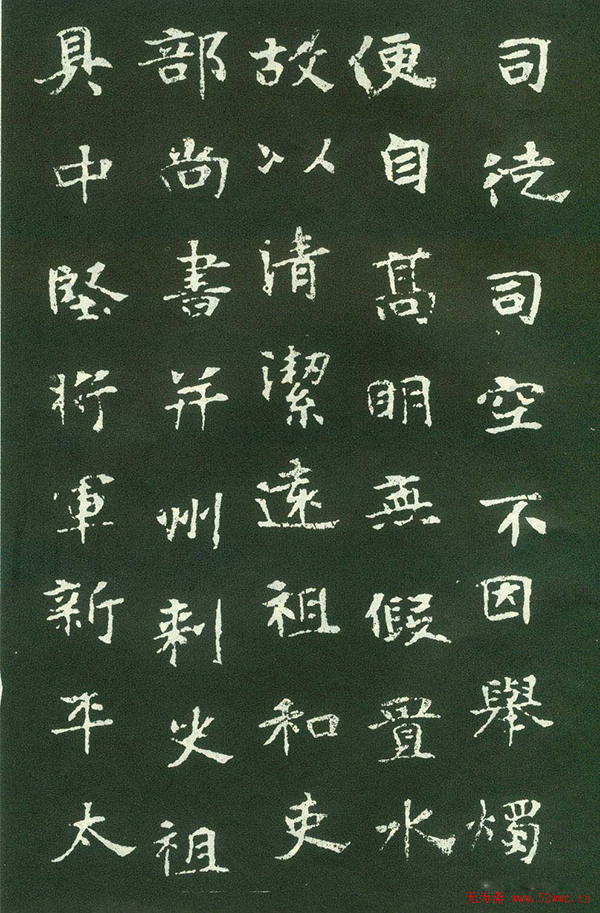 司徒司空不因舉燭
便自高明無假置水
故以清潔遠祖和吏
部尚書并州刺史祖
具中堅將軍新平太
无为斋 www.52wwz.cn